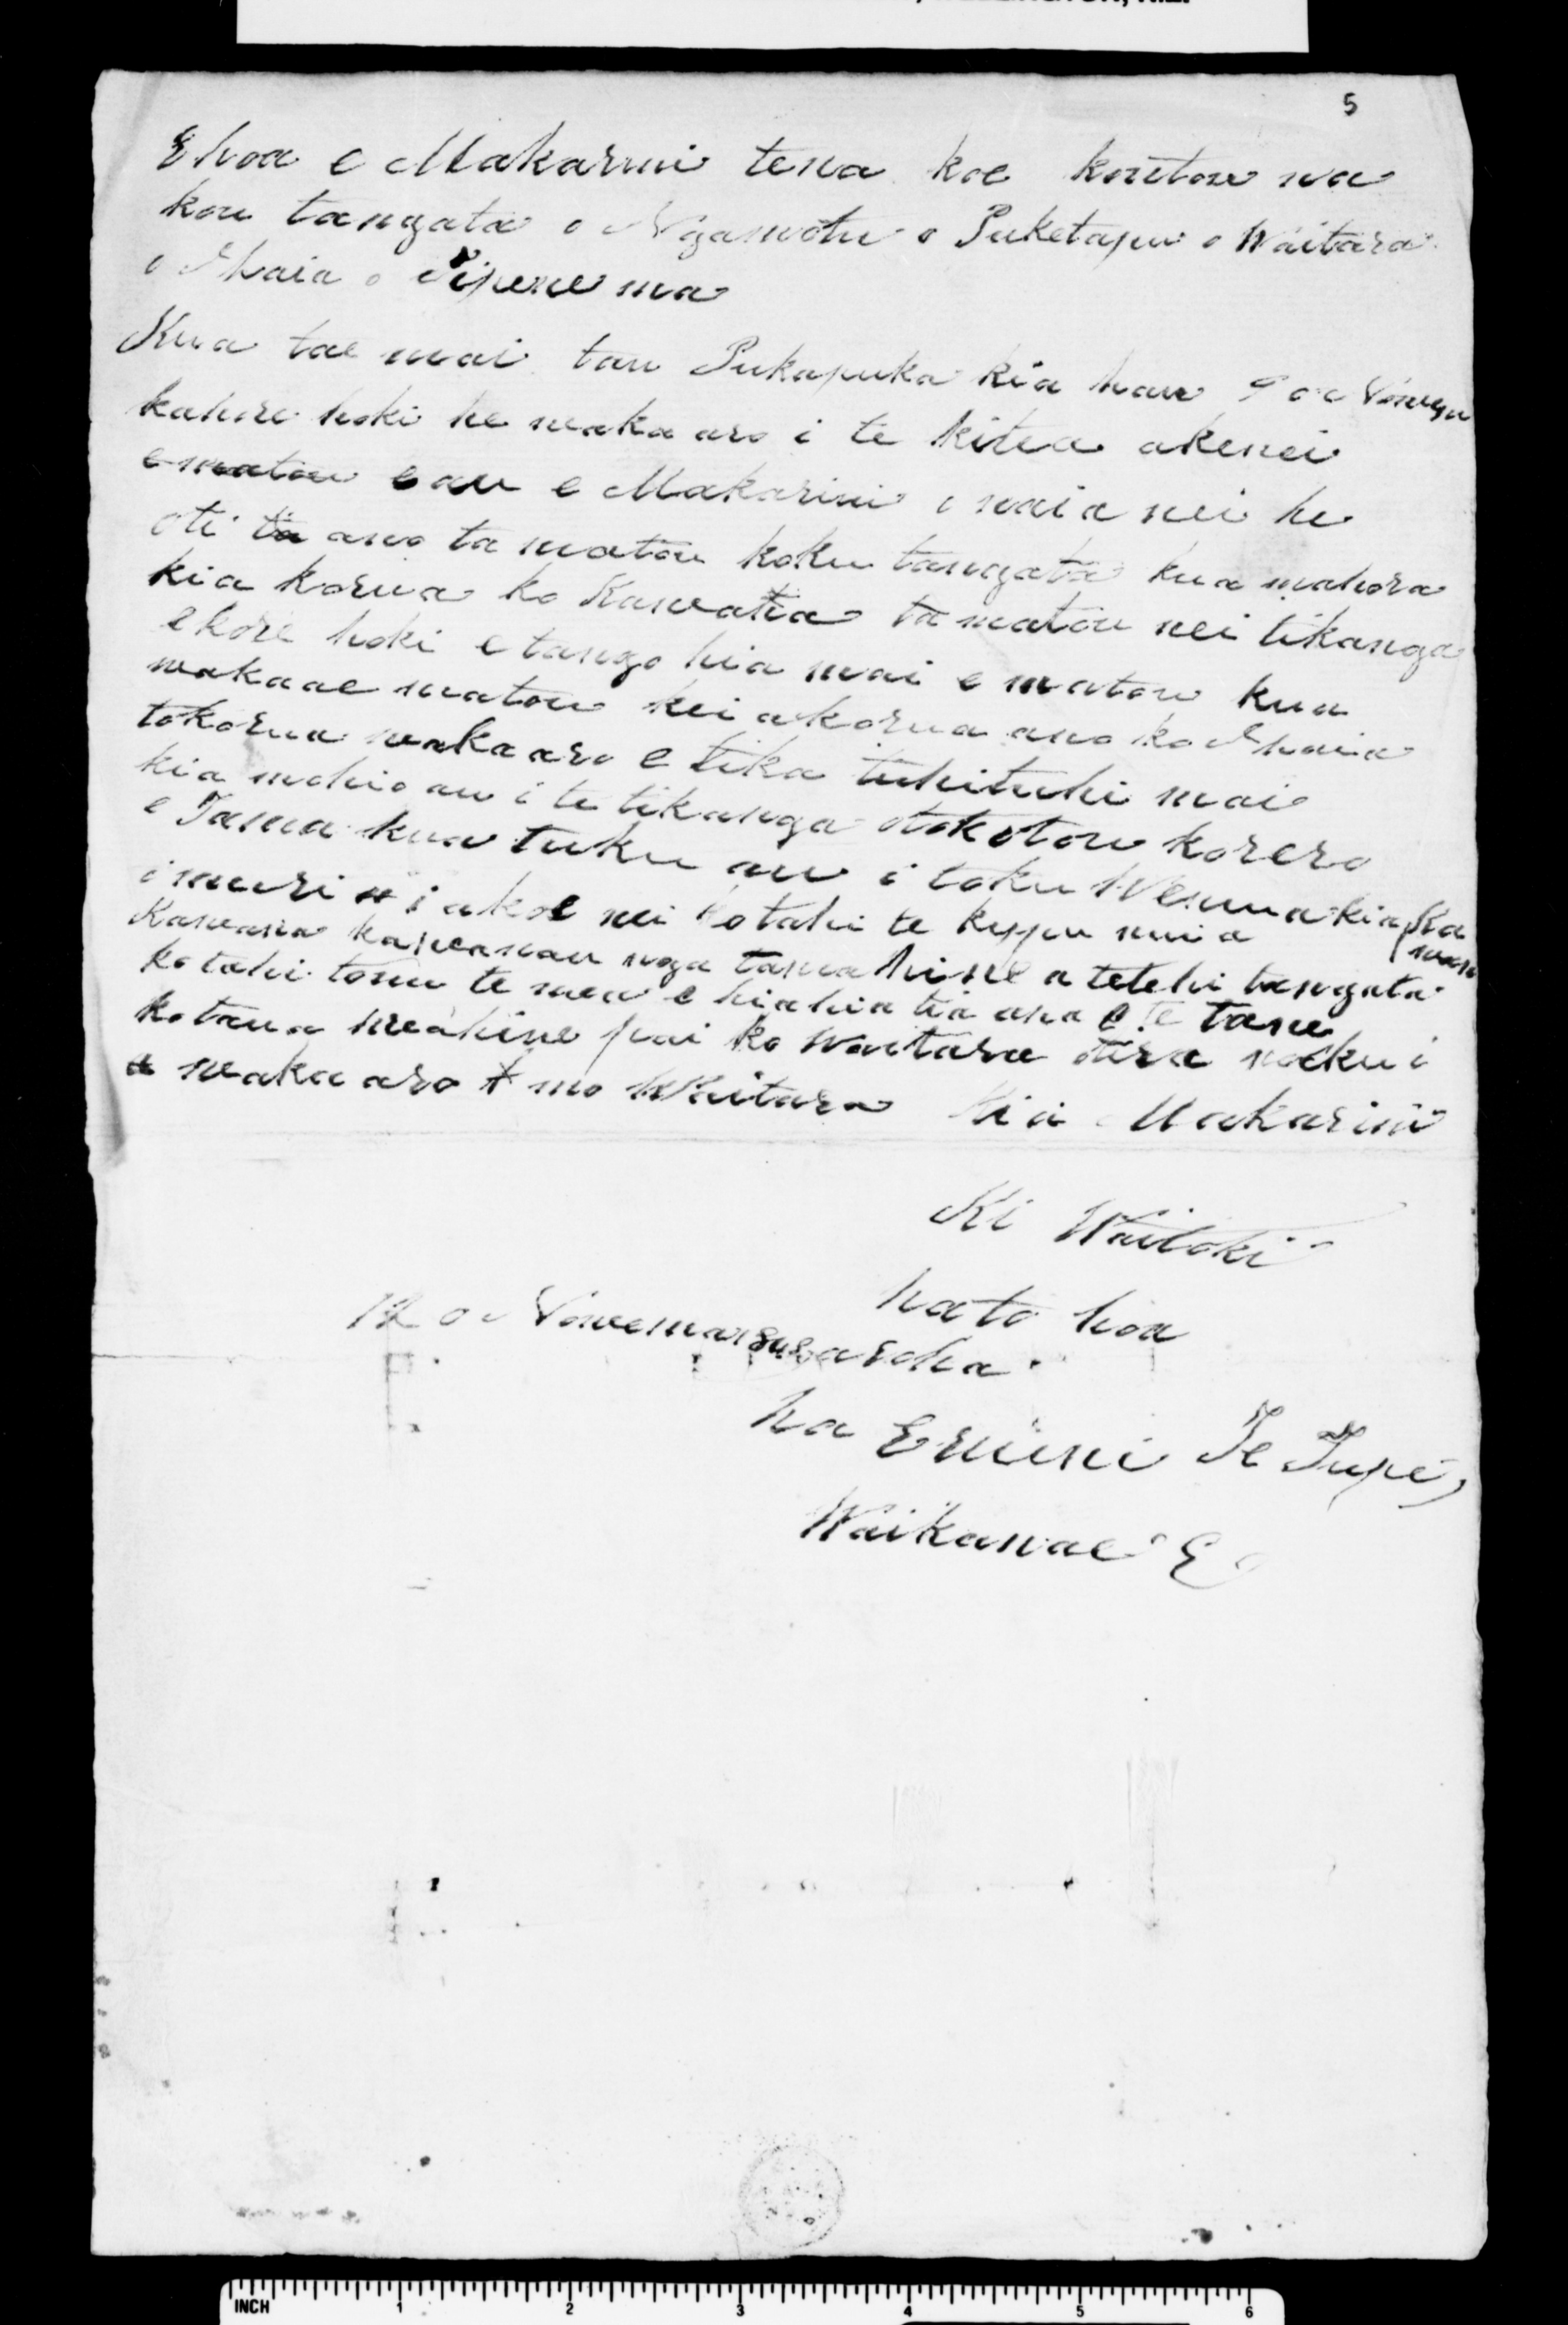 5
E hoa e Makarini tena koe koutou na
kou tangata o Ngamotu o Puketapu o Waitara
o Ihaia o Tipene ma
Kua tae mai tau Pukapuka kia hau 9 o
kahore hoki he wakaaro i te kitea akenei
e matou e au e Makarini i naia nei he
oti ta ano ta matou koku tangata kua mahora
kia korua ko Kawana ta matou nei tikanga
ekore hoki e tango hia mai e matou kua
wakaae matou kei a korua ano ko Ihaia
tokorua wakaaro e tika tuhituhi mai
kia mohio au i te tikanga otokotou korero
e Tama kua tuku au i toku Wenua kia
i muri i a koe nei kotahi te kupu nui a
Kawana nga tamahine a tetehi tangata
kotahi tonu te mea e hiahia tia ana e te tane
ko taua meahine pai ko Waitara otira noku i
wakaaro mo Waitara Kia Makarini
Ki Waitoki
na to hoa
12 o aroha
na Erueni Te Tupe
Waikanae
INCH 1 2 3 4 5 6